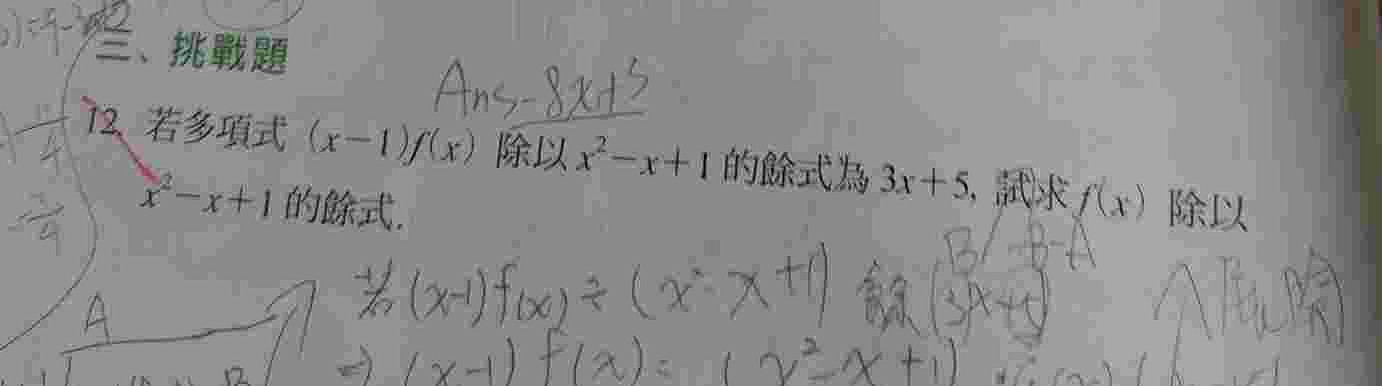 三、挑戰題
Ans -8x+3
12. 若多項式 (x-1)f(x) 除以 x²-x+1 的餘式為 3x+5, 試求 f(x) 除以
x²-x+1 的餘式.
B -B-A
若(x-1)f(x)÷(x²-x+1) 餘(3x+5)
A
⇒ (x-1) f(x) = (x²-x+1)
B